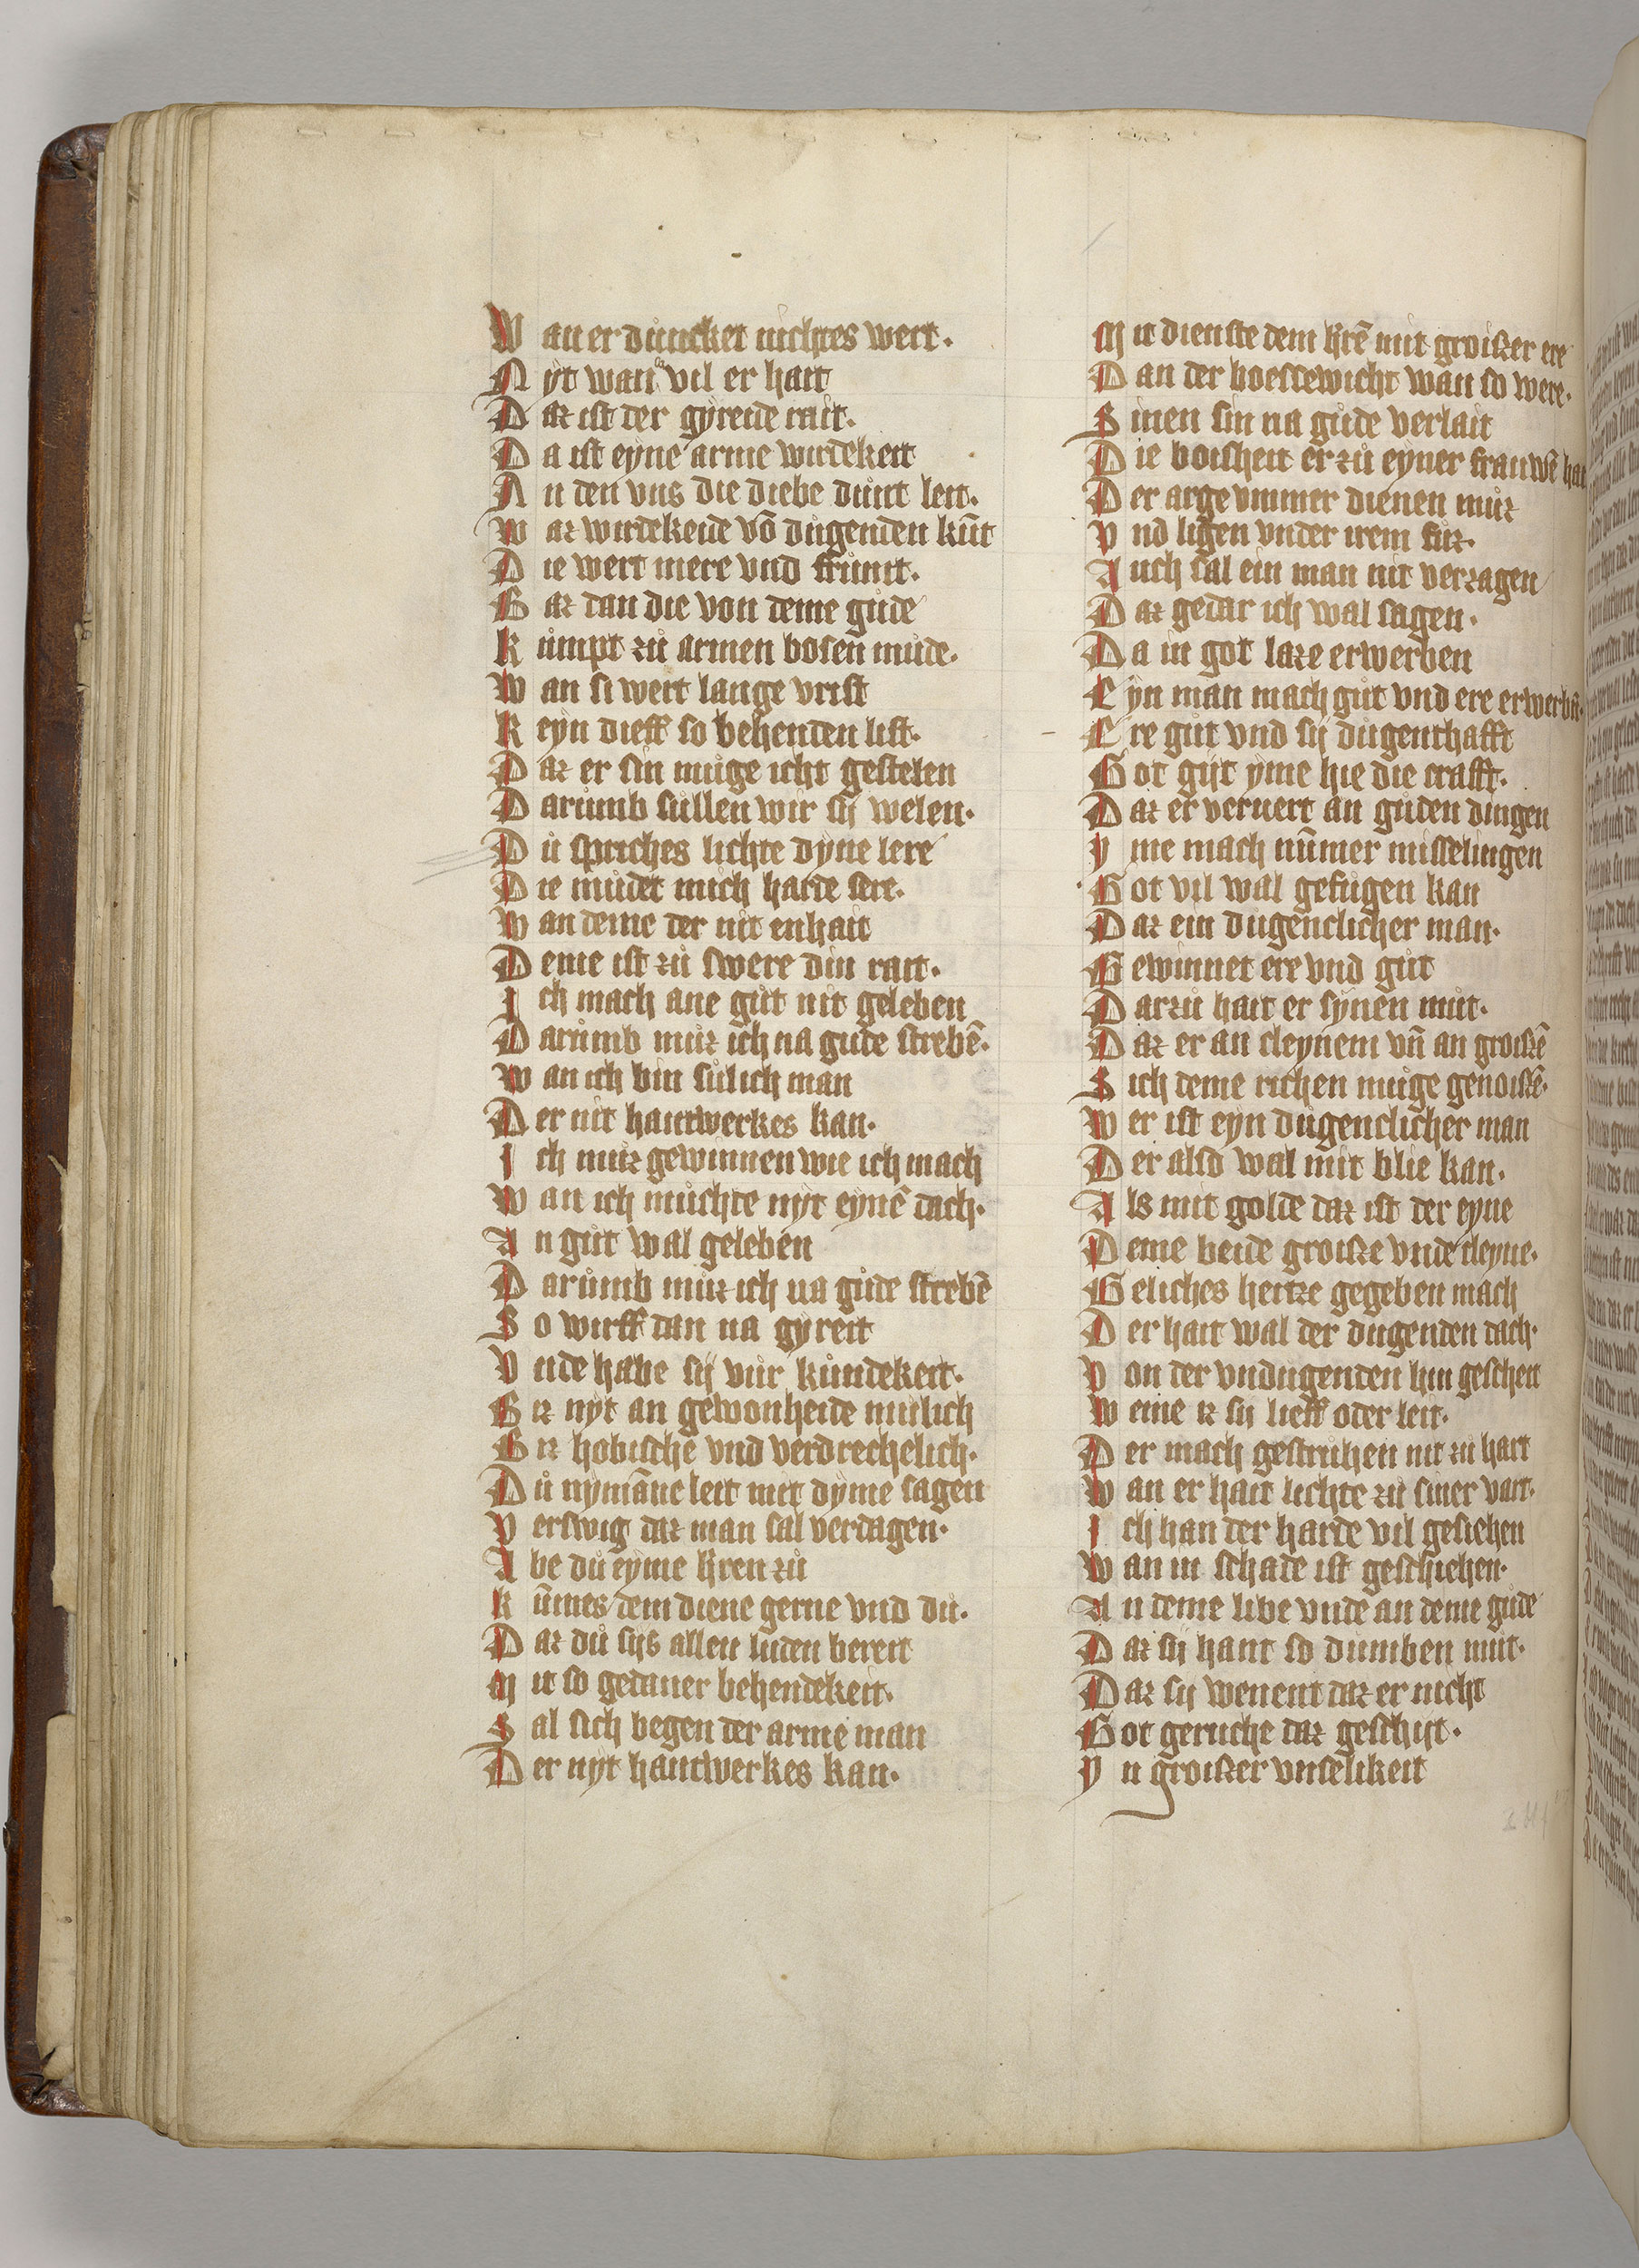 Wan er duncket nichtes wert.
Nyt wan vil er hait
Daz ist der gyrende rait.
Da ist eyne arme wirdekeit
An den vns die diebe důnt leit.
Waz wirdekeide vō důgenden kūt
Die wert mere vnd frůmt.
Baz dan die von deme gůde
Kůmpt zů armen bosen můde.
Wan si wert lange vrist
Keyn dieff so behenden list.
Daz er sin můge icht gestelen
Darůmb sůllen wir sij welen.
Dů spriches lichte dyne lere
Die můdet mich harde sere.
Wan deme der nit enhait
Deme ist zů swere din rait.
Ich mach ane gůt nit geleben
Darůmb můz ich na gůde strebē.
Wan ich bin sůlich man
Der nit hantwerkes kan.
Ich můz gewinnen wie ich mach
Wan ich můchte nyt eynē dach.
An gůt wal geleben
Darůmb můz ich na gůde strebē
So wirff dan na gyreit
Vnde habe sij vůr kůndekeit.
Biz nyt an gewonheide nitlich
Biz hobische vnd verdrechelich.
Dů nymāne leit mit dyme sagen
Verswig daz man sal verdagen.
Abe dů eyme hren zů
Kūmes dem diene gerne vnd dů.
Daz dů sijs allen lůden bereit
Mit so gedaner behendekeit.
Sal sich begen der arme man
Der nyt hantwerkes kan.
Mit dienste dem hrē mit groißer ere
Dan der boesewicht wan so were.
Sinen sin na gůde verlait
Die boisheit er zů eyner frauwē hait
Der arge vmmer dienen můz
Vnd ligen vnder irem fůz.
Auch sal ein man nit verzagen
Daz gedar ich wal sagen.
Da in got laze erwerben
Eyn man mach gůt vnd ere erwerbē.
Ere gůt vnd sij dugenthafft
Got gijt yme hie die crafft.
Daz er veruert an gůden dingen
Yme mach nūmer misselingen
Got vil wal gefůgen kan
Daz ein dugenclicher man.
Gewinnet ere vnd gůt
Darzů hait er synen můt.
Daz er an cleynem vn̄ an groißē
Sich deme richen můge genoißē.
Wer ist eyn důgenclicher man
Der also wal mit blie kan.
Als mit golde daz ist der eyne
Deme beide groiße vnde cleyne.
Geliches hertze gegeben mach
Der hait wal der dugenden dach.
Von der vndugenden hin gescheit
Weme iz sij lieff oder leit.
Der mach gestruhen nit zů hart
Wan er hait lichte zů siner vart.
Ich han der harde vil gesiehen
Wan in schade ist geschiehen.
An deme libe vnde an deme gůde
Daz sij hant so dumben můt.
Daz sij wenent daz er nicht
Got geruche daz geschijt.
Yn groißer vnselikeit